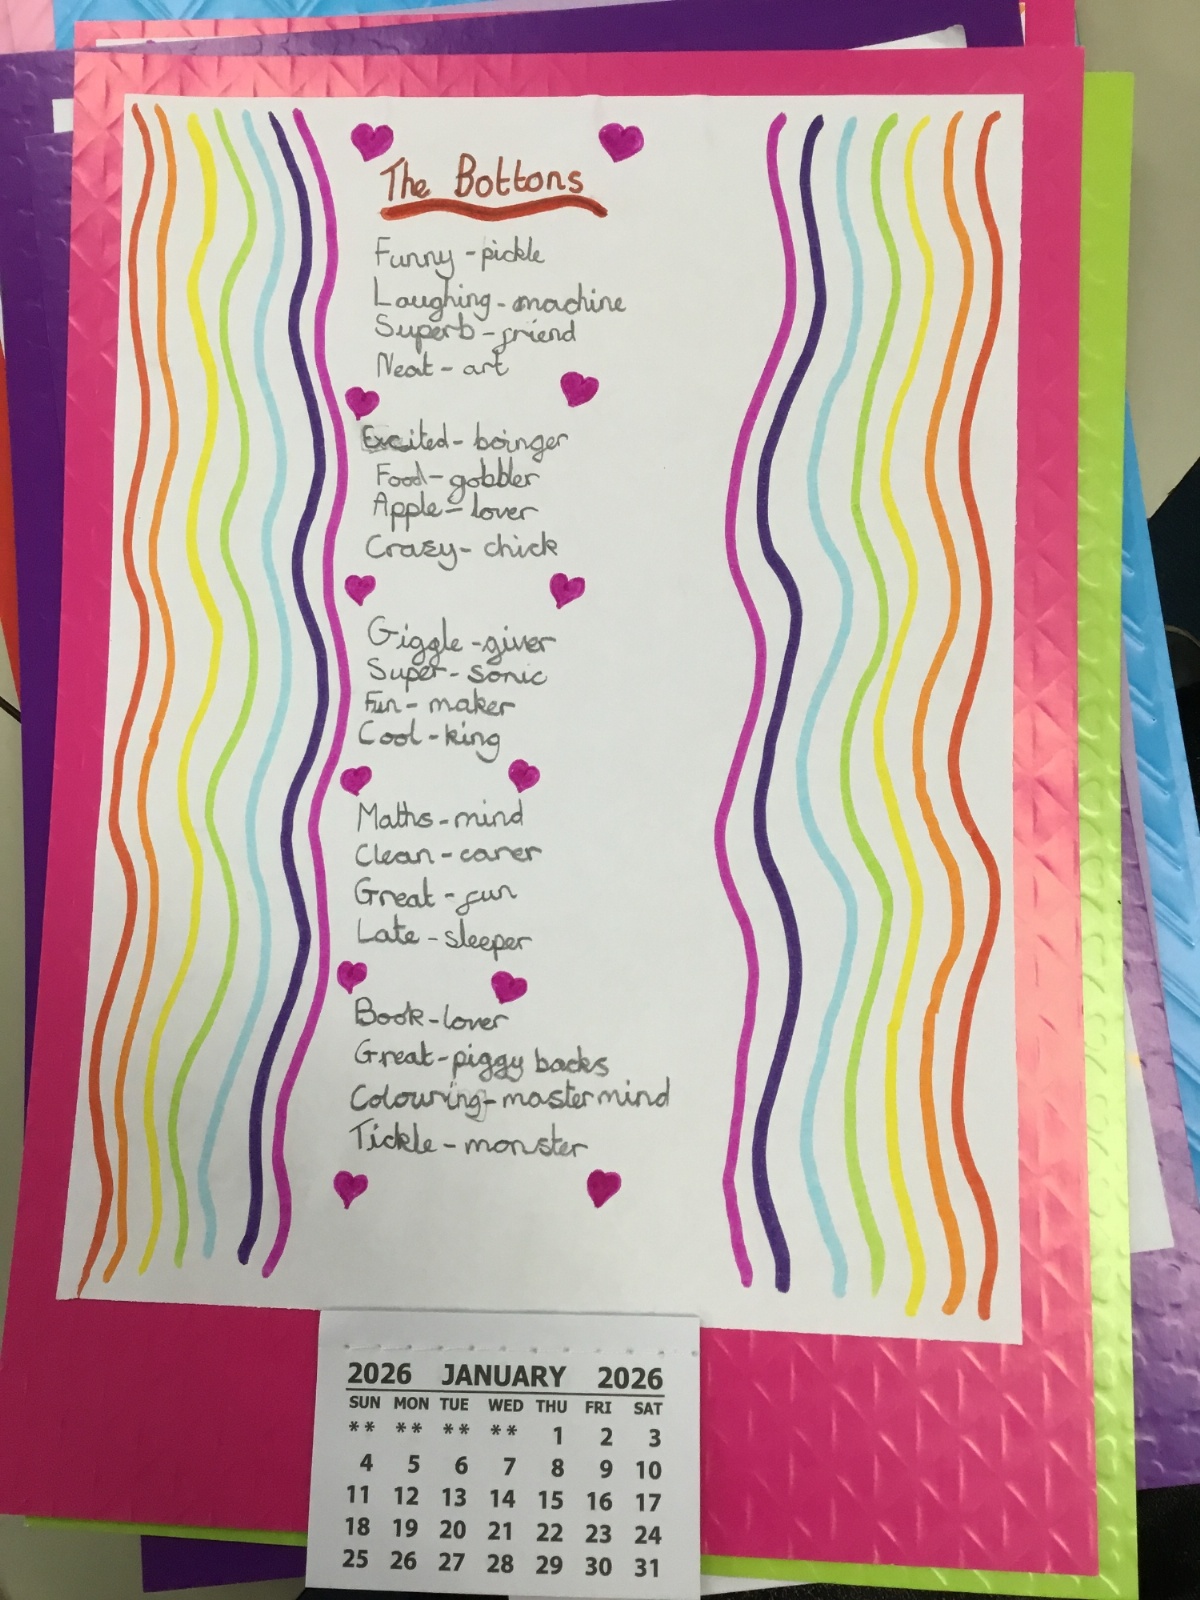 The Bottons
Funny - pickle
Laughing - machine
Superb - friend
Neat - art
Excited - boinger
Food - gobbler
Apple - lover
Crazy - chick
Giggle - giver
Super - sonic
Fun - maker
Cool - king
Maths - mind
Clean - carer
Great - fun
Late - sleeper
Book - lover
Great - piggy backs
Colouring - master mind
Tickle - monster
2026 JANUARY 2026
SUN MON TUE WED THU FRI SAT
** ** ** ** 1 2 3
4 5 6 7 8 9 10
11 12 13 14 15 16 17
18 19 20 21 22 23 24
25 26 27 28 29 30 31